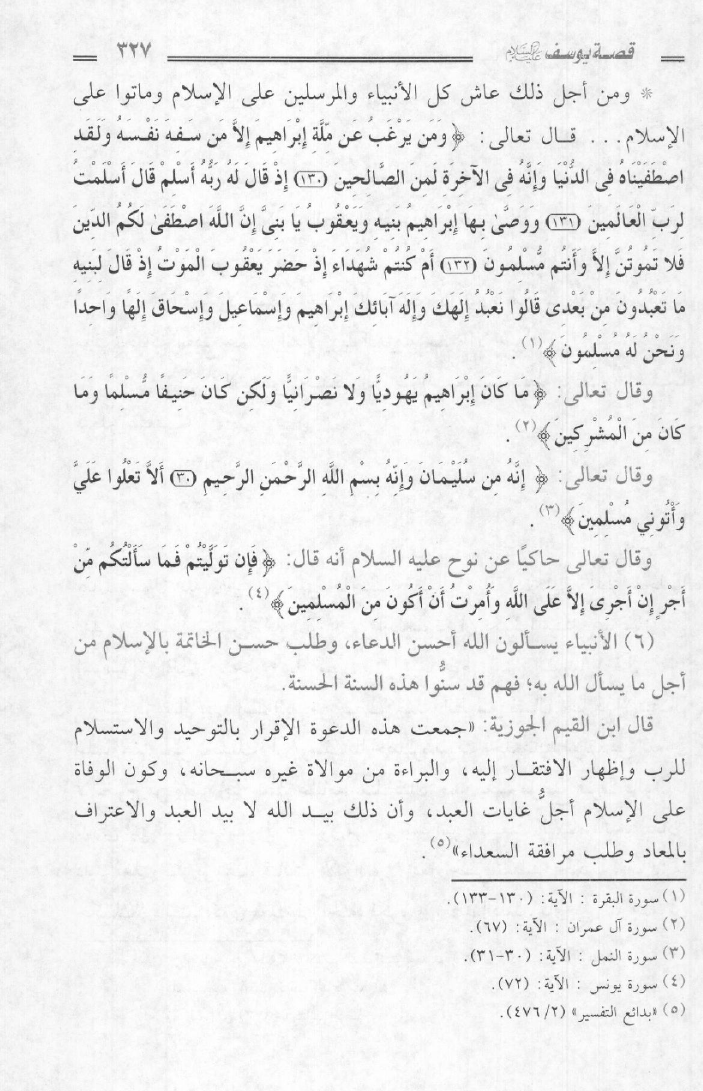 قصة يوسف عليه السلام ٣٢٧
* ومن أجل ذلك عاش كل الأنبياء والمرسلين على الإسلام وماتوا على
الإسلام... قال تعالى: ﴿ وَمَن يَرْغَبُ عَن مِّلَّةِ إِبْرَاهِيمَ إِلاَّ مَن سَفِهَ نَفْسَهُ وَلَقَدِ
اصْطَفَيْنَاهُ فِي الدُّنْيَا وَإِنَّهُ فِي الآخِرَةِ لَمِنَ الصَّالِحِينَ (١٣٠) إِذْ قَالَ لَهُ رَبُّهُ أَسْلِمْ قَالَ أَسْلَمْتُ
لِرَبِّ الْعَالَمِينَ (١٣١) وَوَصَّىٰ بِهَا إِبْرَاهِيمُ بَنِيهِ وَيَعْقُوبُ يَا بَنِيَّ إِنَّ اللَّهَ اصْطَفَىٰ لَكُمُ الدِّينَ
فَلا تَمُوتُنَّ إِلاَّ وَأَنتُم مُّسْلِمُونَ (١٣٢) أَمْ كُنتُمْ شُهَدَاءَ إِذْ حَضَرَ يَعْقُوبَ الْمَوْتُ إِذْ قَالَ لِبَنِيهِ
مَا تَعْبُدُونَ مِنْ بَعْدِي قَالُوا نَعْبُدُ إِلَهَكَ وَإِلَهَ آبَائِكَ إِبْرَاهِيمَ وَإِسْمَاعِيلَ وَإِسْحَاقَ إِلَهًا وَاحِدًا
وَنَحْنُ لَهُ مُسْلِمُونَ ﴾(١).
وقال تعالى: ﴿ مَا كَانَ إِبْرَاهِيمُ يَهُودِيًّا وَلا نَصْرَانِيًّا وَلَكِن كَانَ حَنِيفًا مُّسْلِمًا وَمَا
كَانَ مِنَ الْمُشْرِكِينَ ﴾(٢).
وقال تعالى: ﴿ إِنَّهُ مِن سُلَيْمَانَ وَإِنَّهُ بِسْمِ اللَّهِ الرَّحْمَنِ الرَّحِيمِ (٣٠) أَلاَّ تَعْلُوا عَلَيَّ
وَأْتُونِي مُسْلِمِينَ ﴾(٣).
وقال تعالى حاكيًا عن نوح عليه السلام أنه قال: ﴿ فَإِن تَوَلَّيْتُمْ فَمَا سَأَلْتُكُم مِّنْ
أَجْرٍ إِنْ أَجْرِيَ إِلاَّ عَلَى اللَّهِ وَأُمِرْتُ أَنْ أَكُونَ مِنَ الْمُسْلِمِينَ ﴾(٤).
(٦) الأنبياء يسألون الله أحسن الدعاء، وطلب حسن الخاتمة بالإسلام من
أجل ما يسأل الله به؛ فهم قد سنُّوا هذه السنة الحسنة.
قال ابن القيم الجوزية: «جمعت هذه الدعوة الإقرار بالتوحيد والاستسلام
للرب وإظهار الافتقار إليه، والبراءة من موالاة غيره سبحانه، وكون الوفاة
على الإسلام أجلُّ غايات العبد، وأن ذلك بيد الله لا بيد العبد والاعتراف
بالمعاد وطلب مرافقة السعداء»(٥).
(١) سورة البقرة : الآية: (١٣٠-١٣٣).
(٢) سورة آل عمران : الآية: (٦٧).
(٣) سورة النمل : الآية: (٣٠-٣١).
(٤) سورة يونس : الآية: (٧٢).
(٥) «بدائع التفسير» (٢/ ٤٧٦).